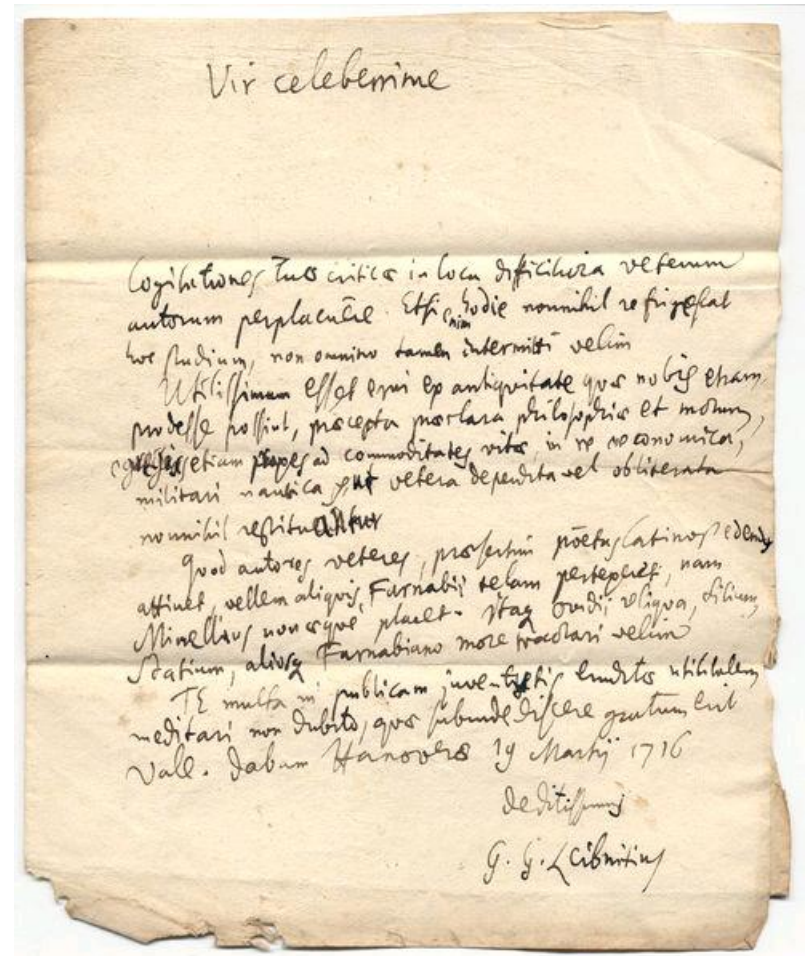 Vir celeberrime
Cogitationes tuæ criticæ in loca difficiliora veterum
autorum perplacuêre. Etsi enim hodie nonnihil refrigescat
hoc studium, non omnino tamen intermitti velim
Utilissimum esset erui ex antiquitate quæ nobis etiam
prodesse possint, præcepta præclara philosophiæ et morum,
etiam ad commoditates vitæ, in re œconomica,
militari nautica ut vetera deperdita vel obliterata
nonnihil restituantur
Quod autores veteres, præsertim poëtas latinos edendos
attinet, vellem aliquis Farnabii telam pertexeret, nam
Minellius non æque placet. Itaq Ovidii reliqua, Silium,
Statium, aliosq Farnabiano more tractari velim
TE multa in publicam juventutis eruditæ utilitatem
meditari non dubito, quæ subinde discere gratum erit
Vale. dabam Hanoveræ 19 Martij 1716
deditissimus
G. G. Leibnitius